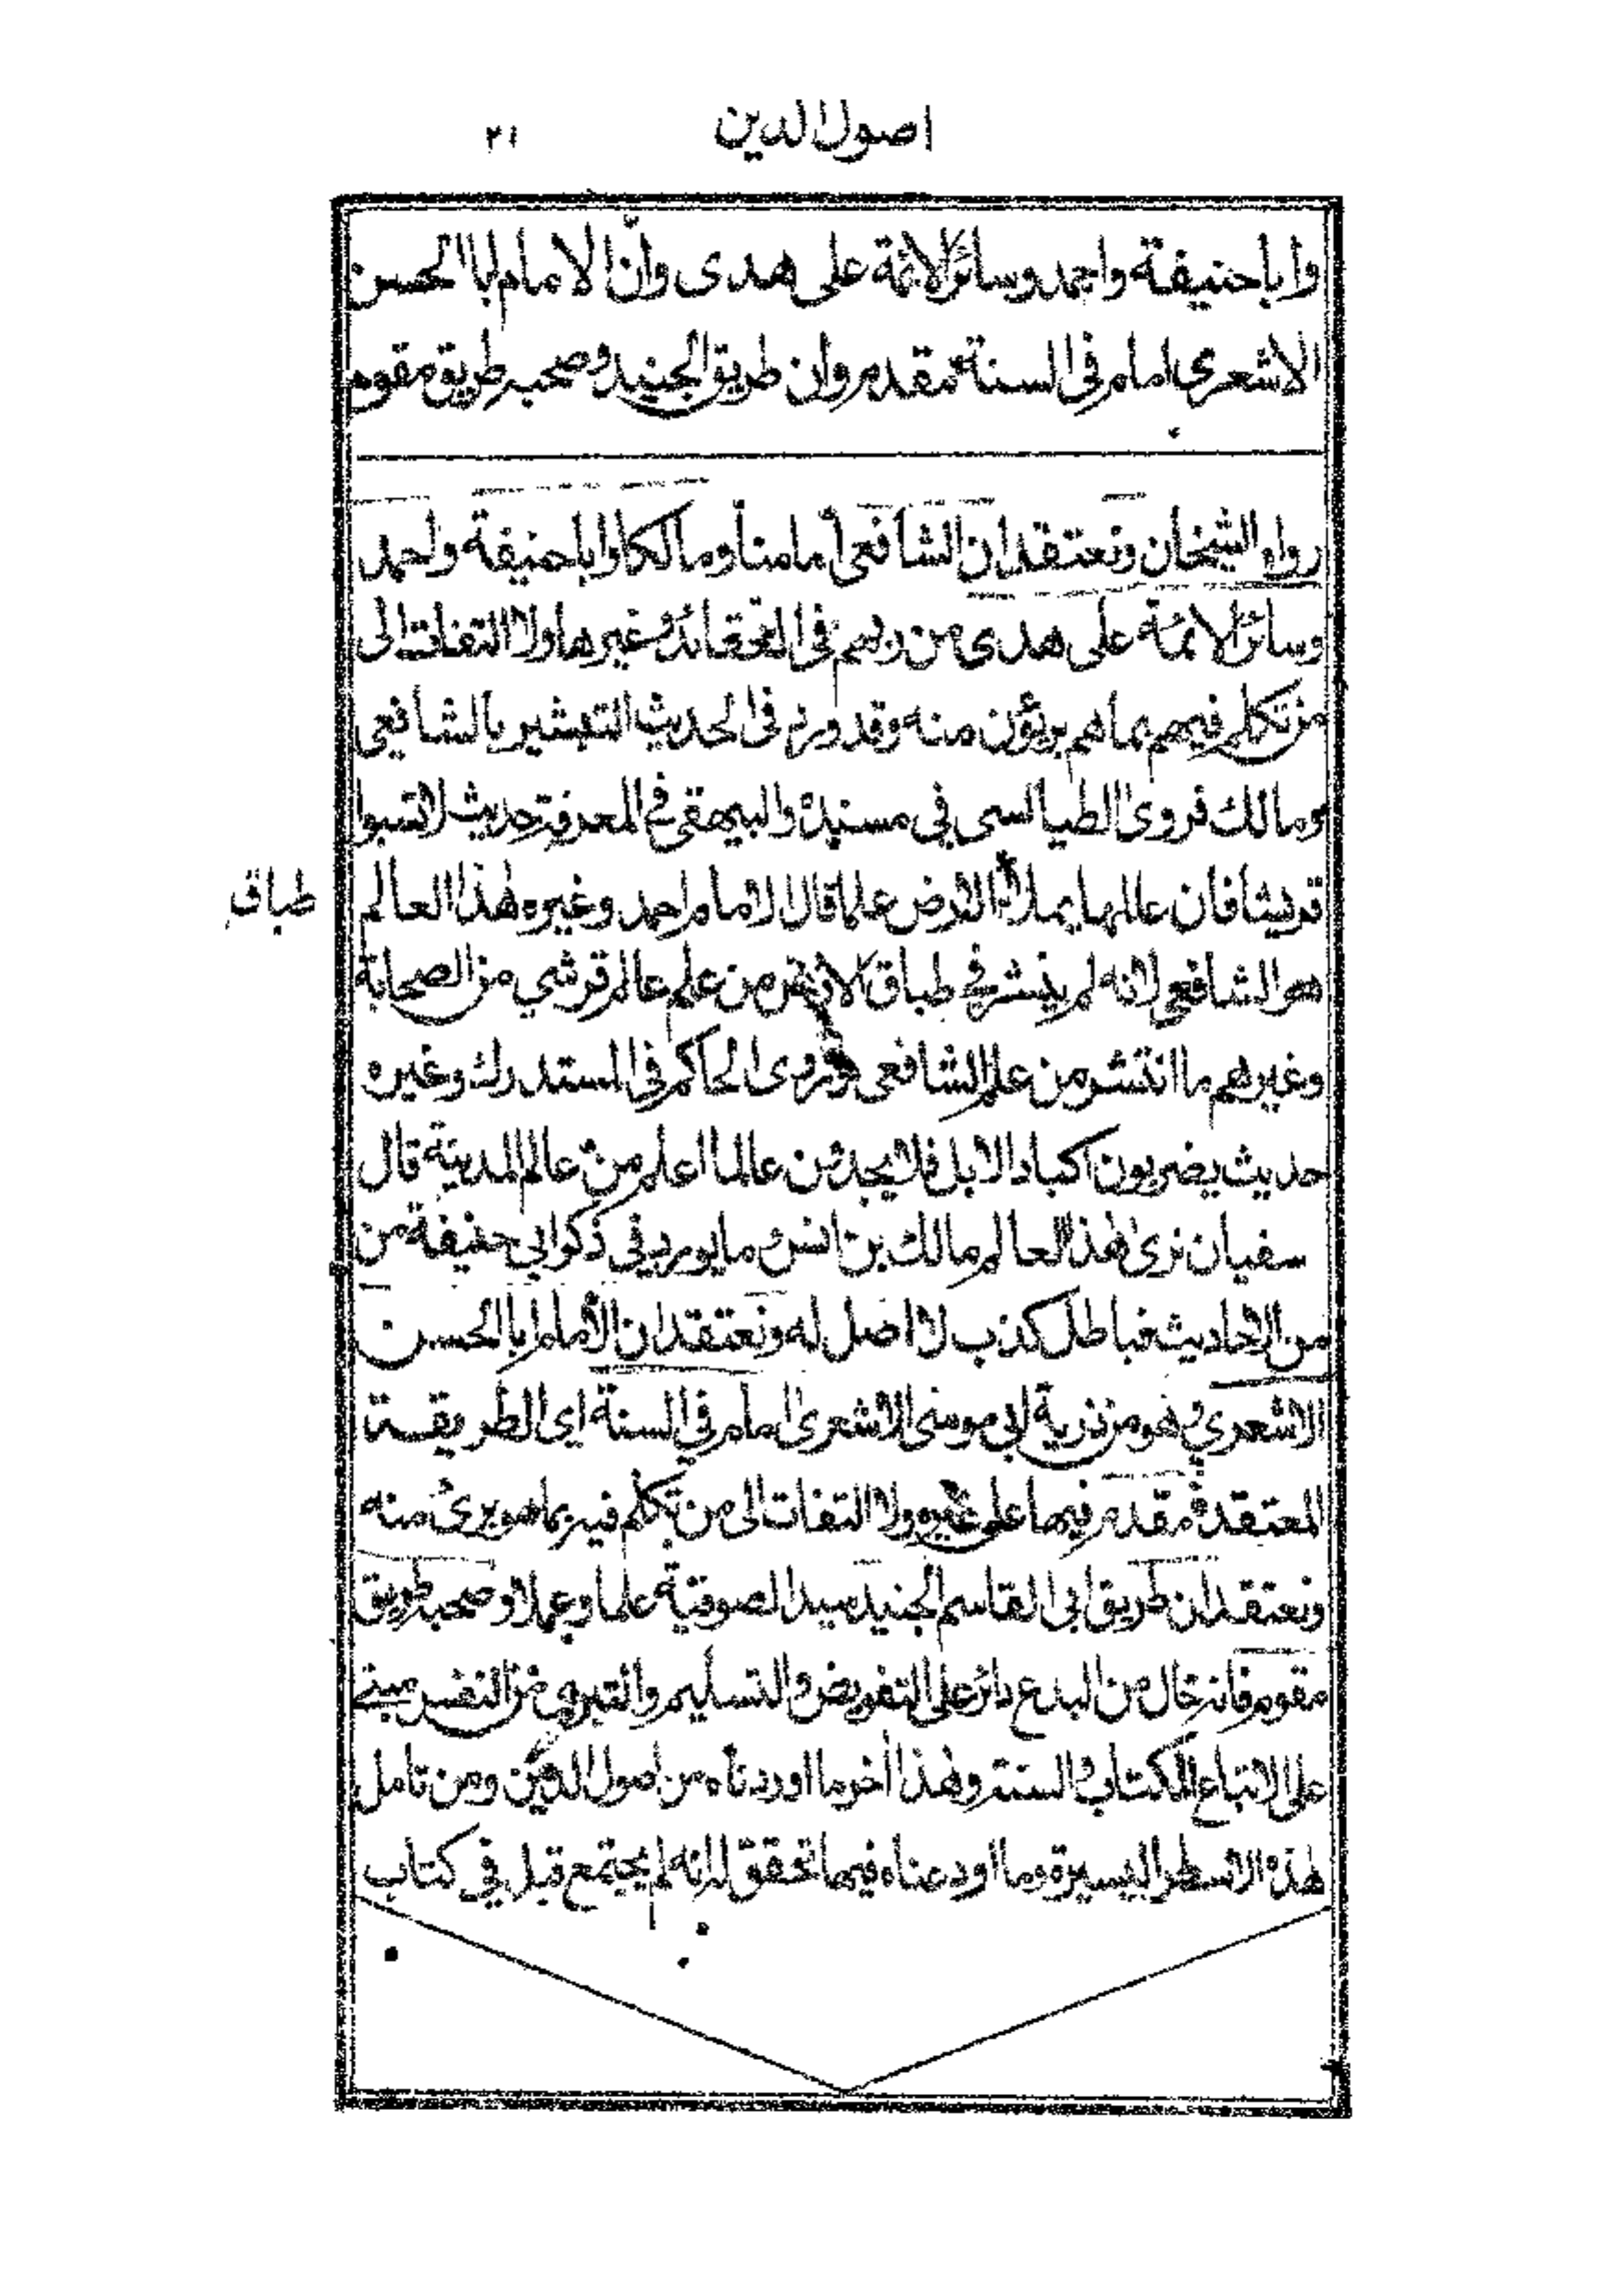 اصول الدين ٢١
وابا حنيفة واحمد وسائر الائمة على هدى وانّ الامام ابا الحسن
الاشعرى امام فى السنة مقدم وان طريق الجنيد وصحبه طريق مقوم
رواه الشيخان ونعتقد ان الشافعى امامنا ومالكا وابا حنيفة واحمد
وسائر الائمة على هدى من ربهم فى العقائد وغيرها ولا التفات الى
من تكلم فيهم بما هم بريؤن منه وقد ورد فى الحديث التبشير بالشافعى
ومالك فروى الطيالسى فى مسنده والبيهقى فى المعرفة حديث لاتسبوا
قريشا فان عالمها يملأ الارض علما قال الامام احمد وغيره هذا العالم
طباق
هو الشافعى لانه لم ينتشر فى طباق الارض من علم عالم قرشي من الصحابة
وغيرهم ما انتشر من علم الشافعى وروى الحاكم فى المستدرك وغيره
حديث يضربون اكباد الابل فلا يجدون عالما اعلم من عالم المدينة قال
سفيان نرى هذا العالم مالك بن انس وما يورد فى ذكر ابي حنيفة من
من الاحاديث فباطل كذب لا اصل له ونعتقد ان الأمام ابا الحسن
الاشعري وهو من ذرية ابى موسى الاشعرى امام فى السنة اى الطريقة
المعتقدة مقدم فيها على غيره ولا التفات الى من تكلم فيه بما هو بريئ منه
ونعتقد ان طريق ابى القاسم الجنيد سيد الصوفية علما وعملا وصحبه طريق
مقوم فانه خال من البدع دائر على التفويض والتسليم والتبرى من النفس مبنى
على الاتباع للكتاب والسنة وهذا أخر ما اوردناه من اصول الدين ومن تامل
هذه الاسطر اليسيرة وما اودعناه فيها تحقق له انه لم يجتمع قبل فى كتاب